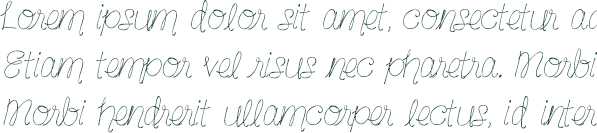 Lorem ipsum dolor sit amet, consectetur ad
Etiam tempor vel risus nec pharetra. Morbi
Morbi hendrerit ullamcorper lectus, id inter